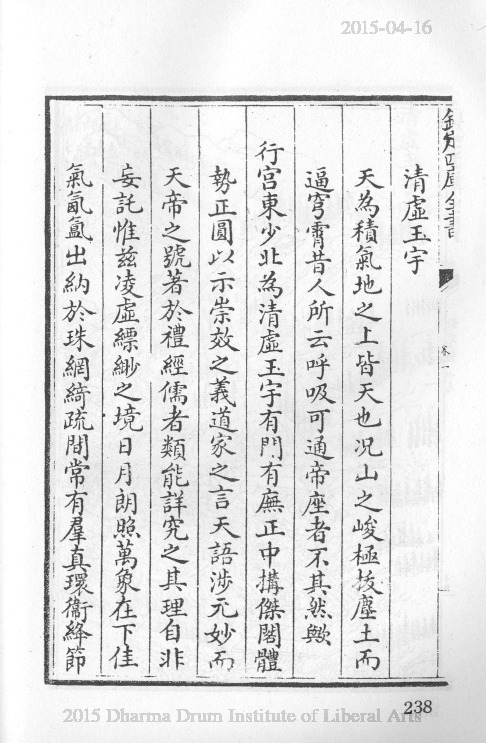 2015-04-16
欽定四庫全書
卷一
清虛玉宇
天為積氣地之上皆天也况山之峻極拔塵土而
逼穹霄昔人所云呼吸可通帝座者不其然歟
行宫東少北為清虛玉宇有門有廡正中搆傑閣體
勢正圓以示崇效之義道家之言天語涉元妙而
天帝之號著於禮經儒者類能詳究之其理自非
妄託惟兹凌虛縹緲之境日月朗照萬象在下佳
氣氤氲出納於珠網綺疏間常有羣真環衞絳節
238
2015 Dharma Drum Institute of Liberal Arts